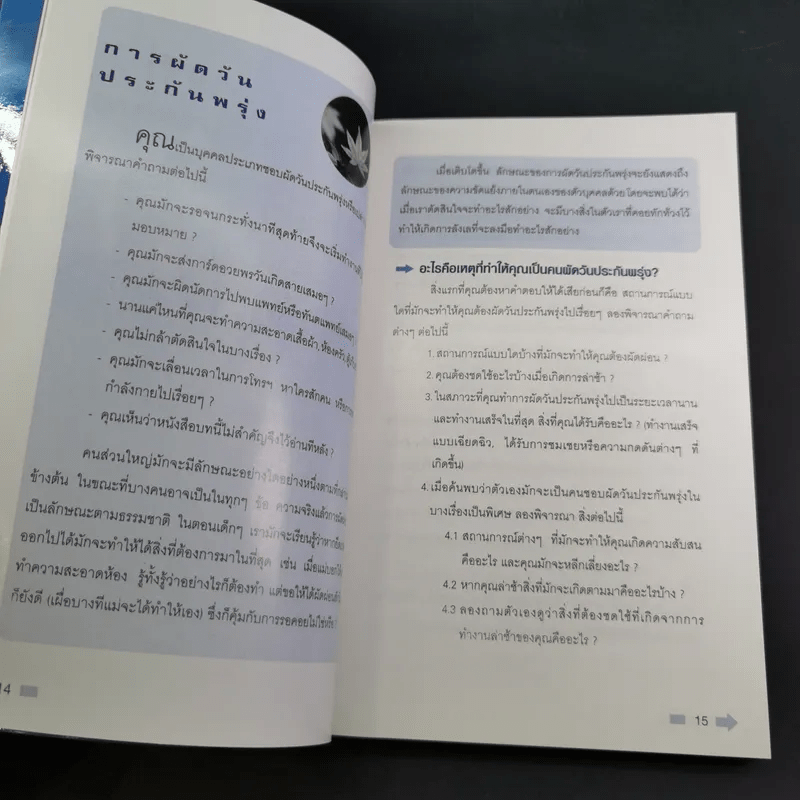 การผัดวัน
ประกันพรุ่ง
คุณเป็นบุคคลประเภทชอบผัดวันประกันพรุ่งหรือ
พิจารณาคำถามต่อไปนี้
- คุณมักจะรอจนกระทั่งนาทีสุดท้ายจึงจะเริ่มทำงาน
มอบหมาย ?
- คุณมักจะส่งการ์ดอวยพรวันเกิดสายเสมอๆ ?
- คุณมักจะผิดนัดการไปพบแพทย์หรือทันตแพทย์เสมอๆ
- นานแค่ไหนที่คุณจะทำความสะอาดเสื้อผ้า, ห้องครัว,
- คุณไม่กล้าตัดสินใจในบางเรื่อง ?
- คุณมักจะเลื่อนเวลาในการโทรฯ หาใครสักคน
กำลังกายไปเรื่อยๆ ?
- คุณเห็นว่าหนังสือบทนี้ไม่สำคัญจึงไว้อ่านทีหลัง ?
คนส่วนใหญ่มักจะมีลักษณะอย่างใดอย่างหนึ่งตามที่
ข้างต้น ในขณะที่บางคนอาจเป็นในทุกๆ ข้อ ความจริงแล้วการ
เป็นลักษณะตามธรรมชาติ ในตอนเด็กๆ เรามักจะเรียนรู้ว่าหาก
ออกไปได้มักจะทำให้ได้สิ่งที่ต้องการมาในที่สุด เช่น เมื่อแม่บอก
ทำความสะอาดห้อง รู้ทั้งรู้ว่าอย่างไรก็ต้องทำ แต่ขอให้ได้ผัดผ่อน
ก็ยังดี (เผื่อบางทีแม่จะได้ทำให้เอง) ซึ่งก็คุ้มกับการรอคอยไม่ใช่หรือ ?
14
เมื่อเติบโตขึ้น ลักษณะของการผัดวันประกันพรุ่งจะยังแสดงถึง
ลักษณะของความขัดแย้งภายในตนเองของตัวบุคคลด้วย โดยจะพบได้ว่า
เมื่อเราตัดสินใจจะทำอะไรสักอย่าง จะมีบางสิ่งในตัวเราที่คอยทักท้วงไว้
ทำให้เกิดการลังเลที่จะลงมือทำอะไรสักอย่าง
อะไรคือเหตุที่ทำให้คุณเป็นคนผัดวันประกันพรุ่ง?
สิ่งแรกที่คุณต้องหาคำตอบให้ได้เสียก่อนก็คือ สถานการณ์แบบ
ใดที่มักจะทำให้คุณต้องผัดวันประกันพรุ่งไปเรื่อยๆ ลองพิจารณาคำถาม
ต่างๆ ต่อไปนี้
1. สถานการณ์แบบใดบ้างที่มักจะทำให้คุณต้องผัดผ่อน ?
2. คุณต้องชดใช้อะไรบ้างเมื่อเกิดการล่าช้า ?
3. ในสภาวะที่คุณทำการผัดวันประกันพรุ่งไปเป็นระยะเวลานาน
และทำงานเสร็จในที่สุด สิ่งที่คุณได้รับคืออะไร ? (ทำงานเสร็จ
แบบเฉียดฉิว, ได้รับการชมเชยหรือความกดดันต่างๆ ที่
เกิดขึ้น)
4. เมื่อค้นพบว่าตัวเองมักจะเป็นคนชอบผัดวันประกันพรุ่งใน
บางเรื่องเป็นพิเศษ ลองพิจารณา สิ่งต่อไปนี้
4.1 สถานการณ์ต่างๆ ที่มักจะทำให้คุณเกิดความสับสน
คืออะไร และคุณมักจะหลีกเลี่ยงอะไร ?
4.2 หากคุณล่าช้าสิ่งที่มักจะเกิดตามมาคืออะไรบ้าง ?
4.3 ลองถามตัวเองดูว่าสิ่งที่ต้องชดใช้ที่เกิดจากการ
ทำงานล่าช้าของคุณคืออะไร ?
15